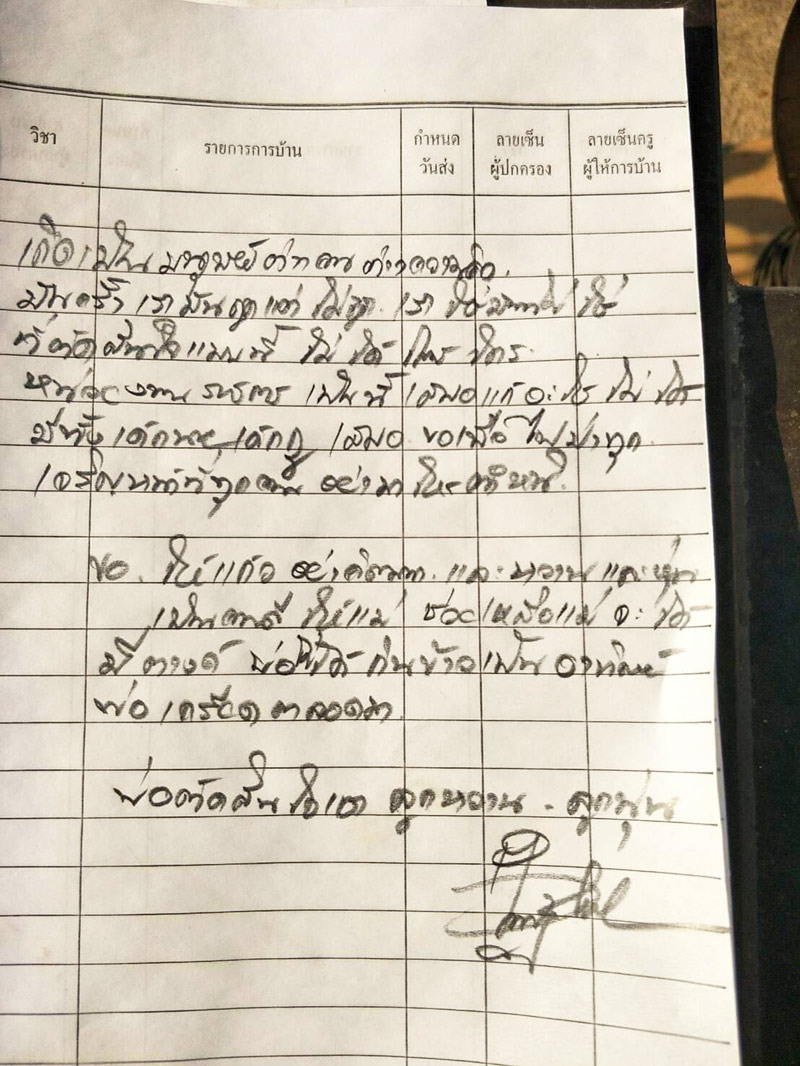 วิชา รายการการบ้าน กำหนดวันส่ง ลายเซ็นผู้ปกครอง ลายเซ็นครูผู้ให้การบ้าน
เกิดเป็นมนุษย์ต่าคนต่างความคิด.
บันครั้ง เรามันถูกแต่ไม่ถูก. เรา ใช่
ที่ตัดสินใจแบบนี้ ไม่ได้โทรใคร.
หน่วยงานราชการ เป็นนี้เสมอแก้อะไรไม่ได้
มีทั้งเด็กนาย, เด็กกู เสมอ. ขอเพื่อ
เจริญหน้าที่ทุกคน อย่ามา
ขอ. ให้แก้ว อย่าคิดมาก. และหวานและฟุ่น
เป็นคนดี ให้แม่ ช่วยเหลือแม่ จะได้
มีตางค์ พ่อไม่ได้กินข้าวเป็นอาทิตย์
พ่อเครียดตลอดมา
พ่อตัดสินใจเอง ลูกหวาน - ลูกฟุ่น